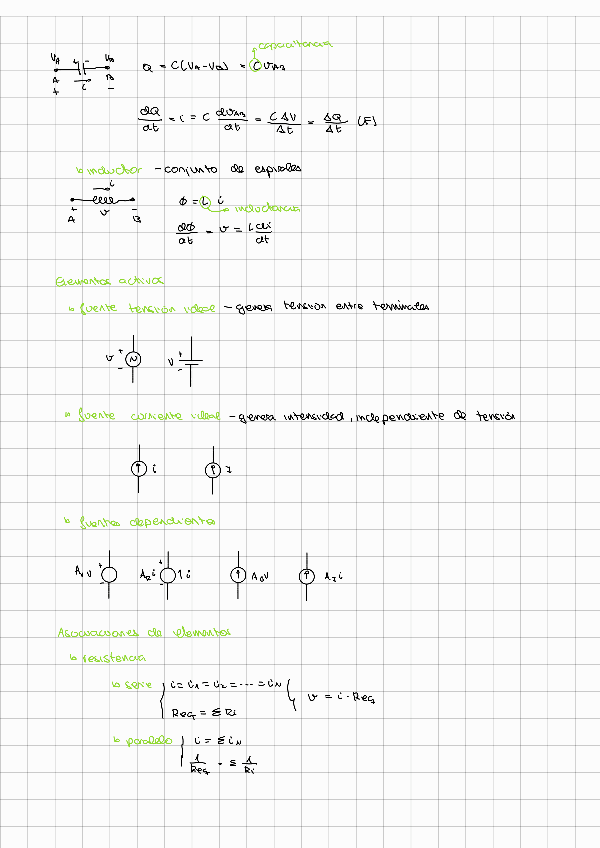 capacitancia
VA VB
A B
+ i -
Q = C(VA-VB) = C VAB
dQ/dt = i = C dVAB/dt = CΔV/Δt = ΔQ/Δt (F)
↳ inductor - conjunto de espirales
i
+ -
A v B
ϕ = L i
→ inductancia
dϕ/dt = v = L di/dt
Elementos activos
↳ fuente tensión ideal - genera tensión entre terminales
v + - V + -
↳ fuente corriente ideal - genera intensidad, independiente de tensión
i I
↳ fuentes dependientes
+ - + -
Asociaciones de elementos
↳ resistencia
↳ serie { i = i1 = i2 = ... = iN
Req = Σ Ri
v = i · Req
↳ paralelo { i = Σ iN
1/Req = Σ 1/Ri